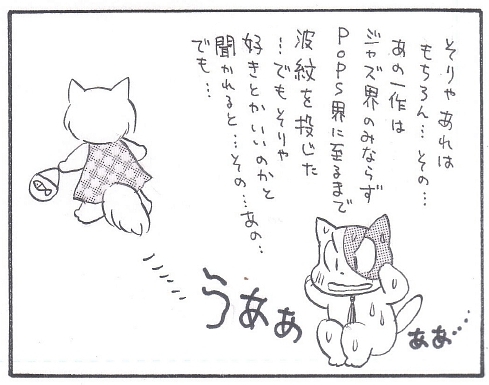 そりゃ あれは
もちろん…その…
あの一作は
ジャズ界のみならず
POPS界に至るまで
波紋を投じた
…でもそりゃ
好きとかいいのかと
聞かれると…その…あの…
でも…
うあぁ
ああ……